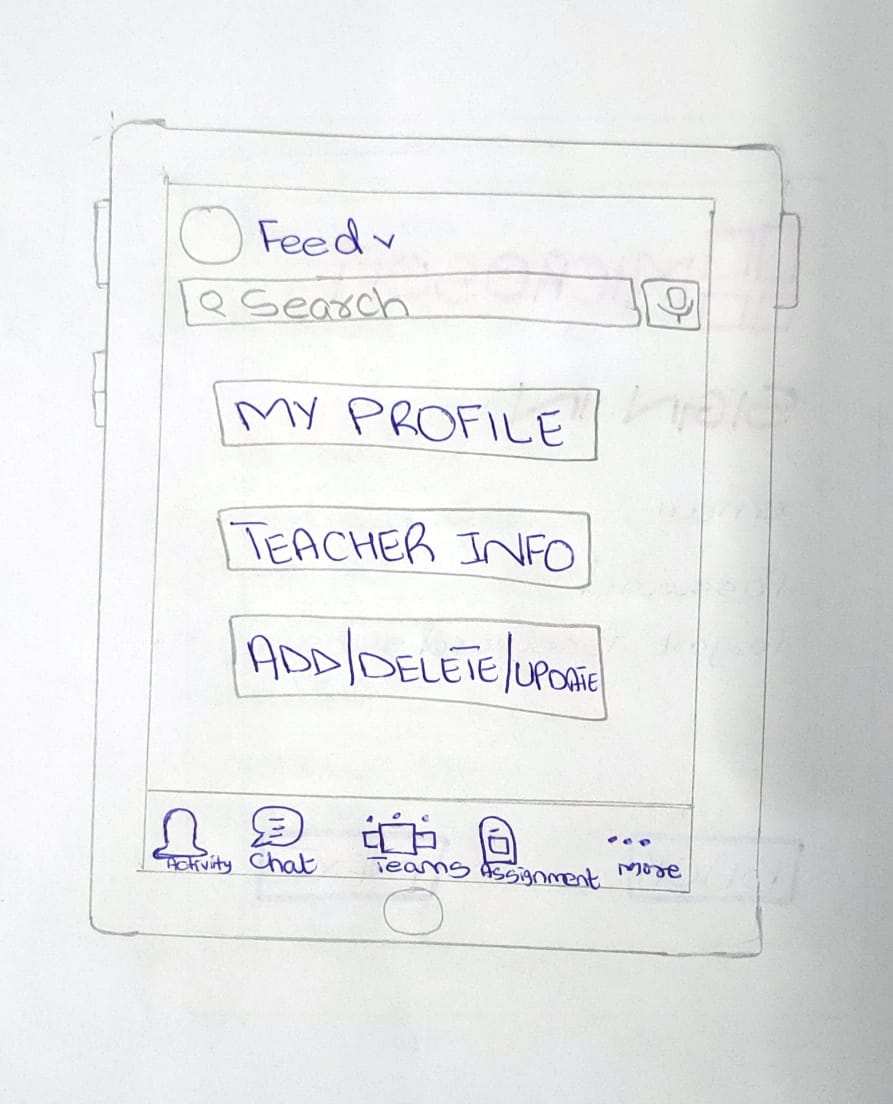 Feed
Search
MY PROFILE
TEACHER INFO
ADD/DELETE/UPDATE
Activity Chat Teams Assignment More